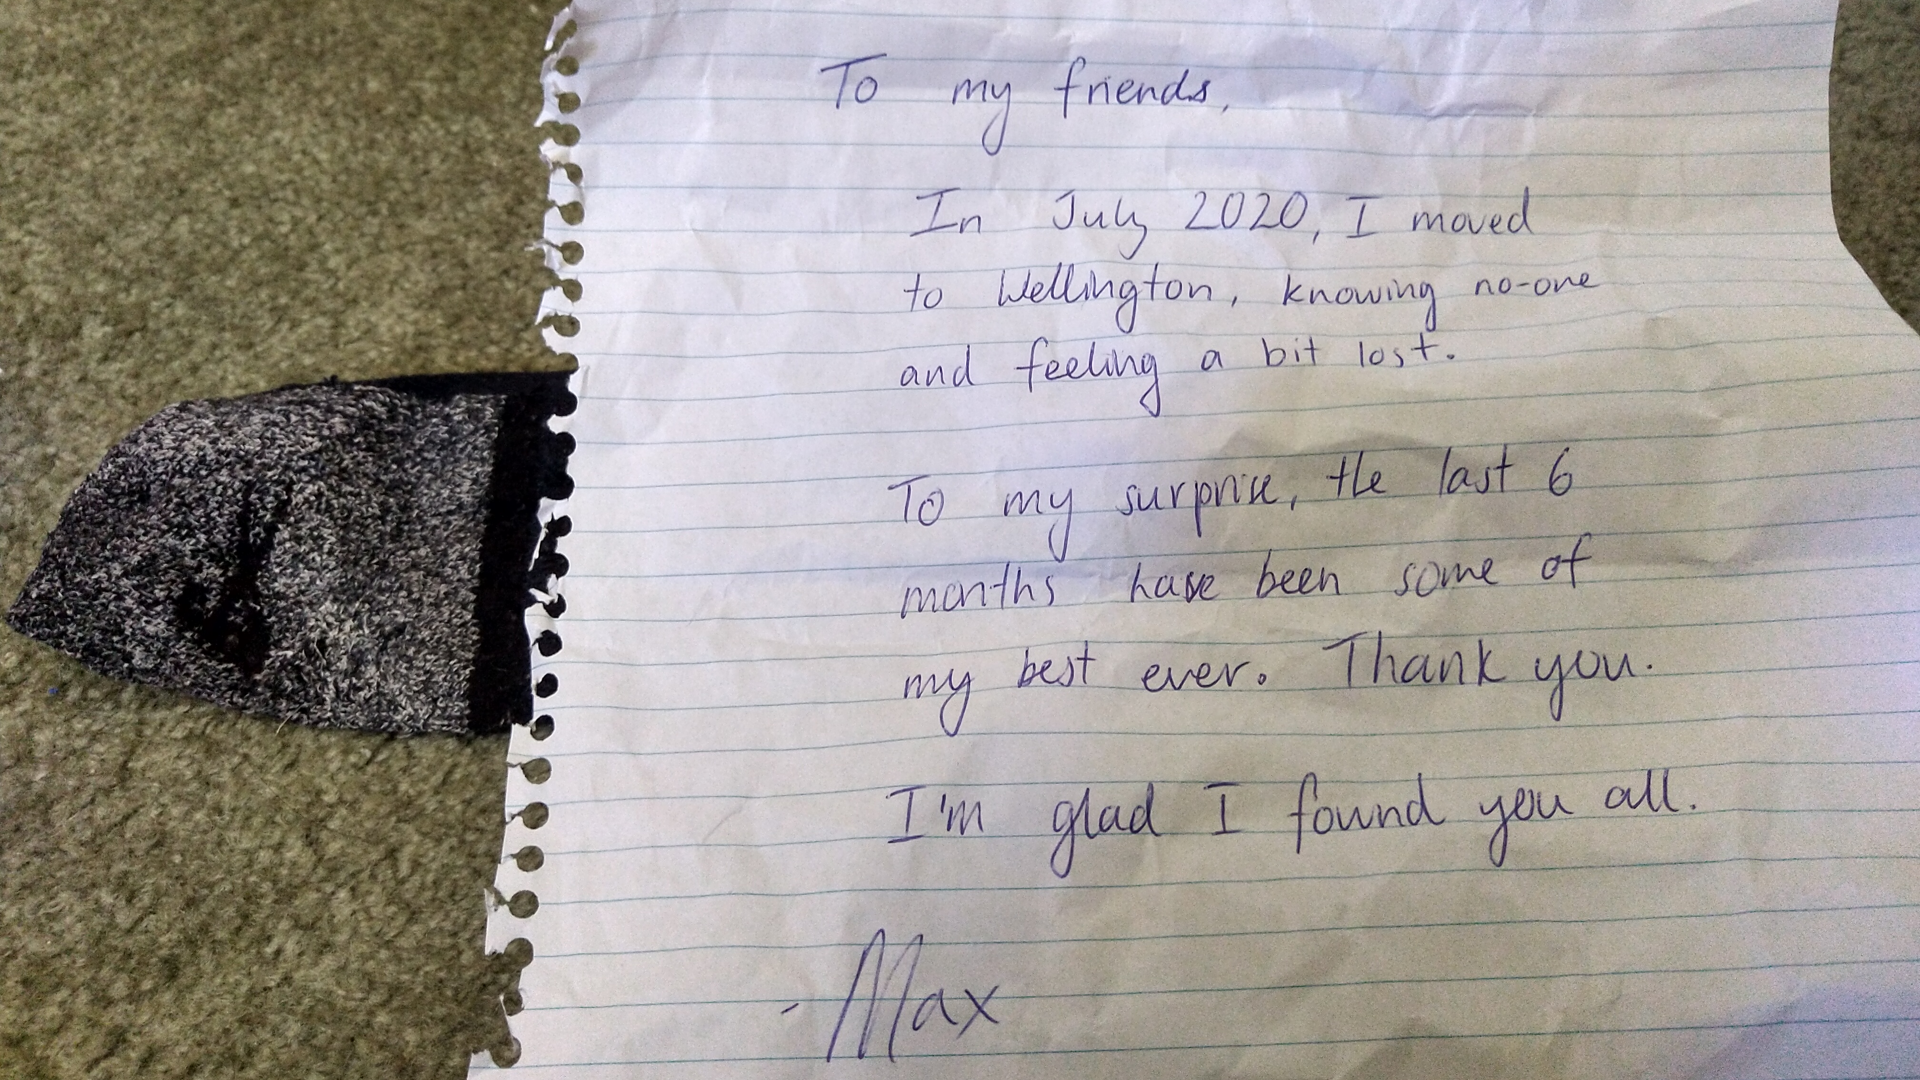 To my friends,
In July 2020, I moved
to Wellington, knowing no-one
and feeling a bit lost.
To my surprise, the last 6
months have been some of
my best ever. Thank you.
I'm glad I found you all.
- Max